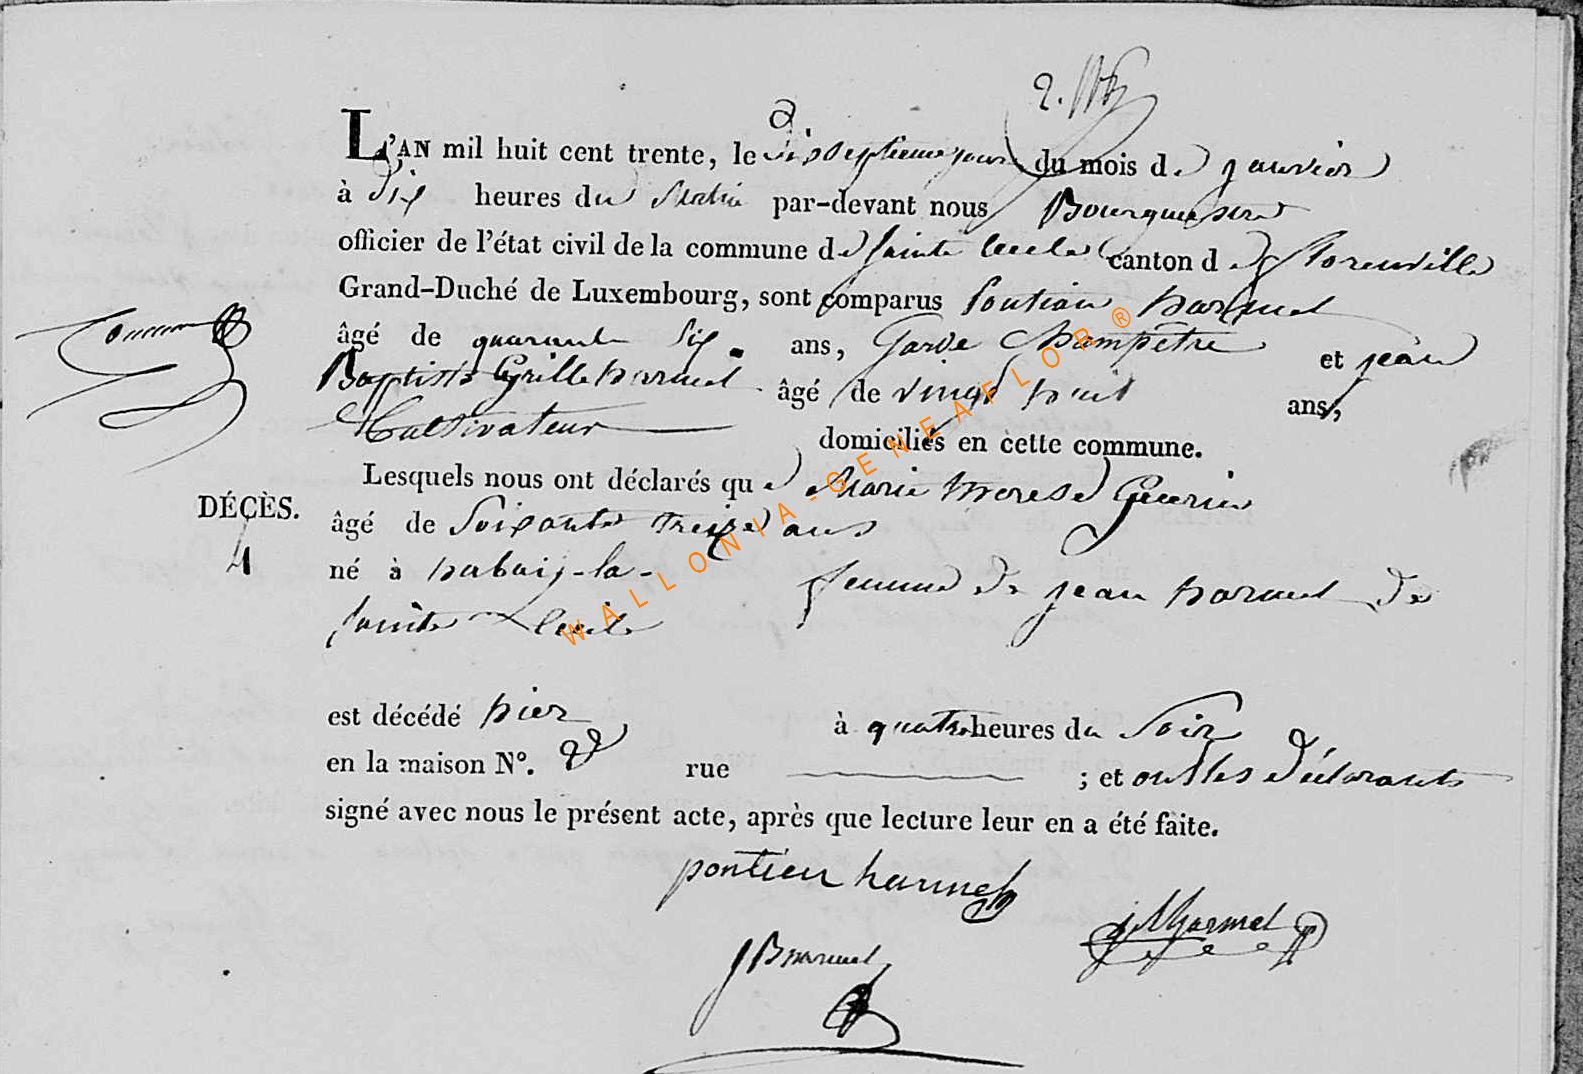 L'AN mil huit cent trente, le dix septieme jour du mois de janvier
à Dix heures du Matin par-devant nous Bourguemestre
officier de l'état civil de la commune de Sainte Cecile canton de Florenville
Grand-Duché de Luxembourg, sont comparus Pontien harmel
âgé de quarante Six ans, Garde Champetre et jean
Baptiste Grille harmel âgé de vingt huit ans,
Cultivateur domiciliés en cette commune.
Lesquels nous ont déclarés que Marie therese Guerin
DÉCÈS. âgé de Soixante treize ans
4 né à habaij-la- femme de jean harmel de
Sainte Cecile
est décédé hier à quatre heures du Soir
en la maison N°. 28 rue ; et ont les Déclarants
signé avec nous le présent acte, après que lecture leur en a été faite.
pontien harmel
J B harmel
WALLONIA-GENEAFLOR®